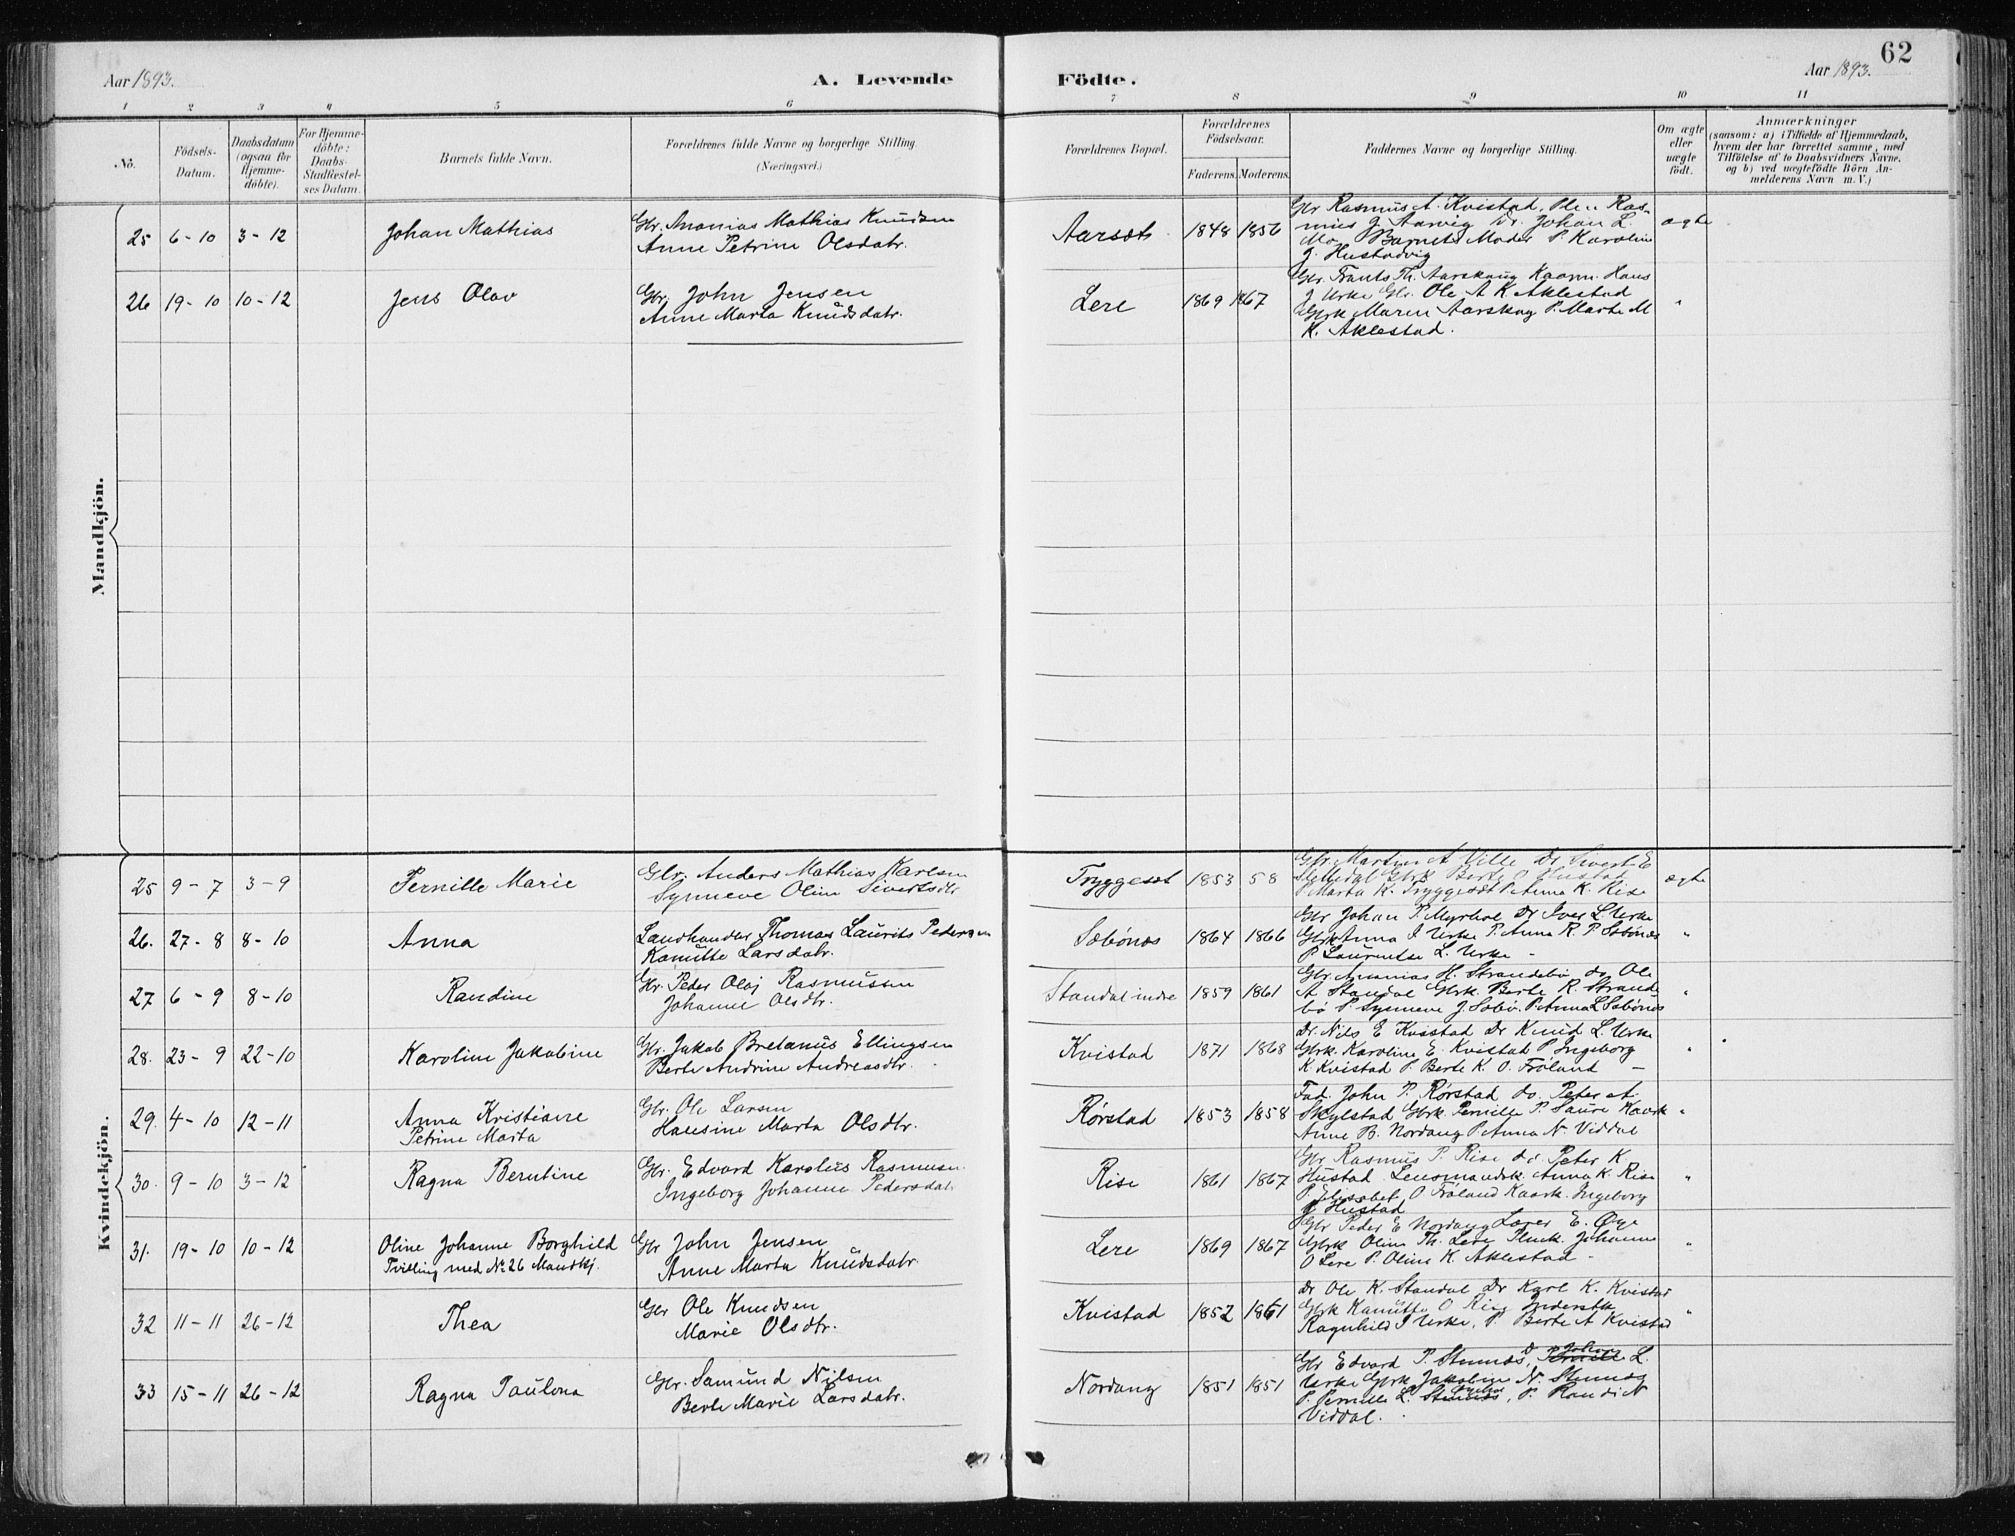 62
Aar 1893.
A. Levende
Födte.
Aar 1893.
1 2 3 4 5 6 7 8 9 10 11
No.
Födsels-
Datum.
Daabsdatum
(ogsaa för
Hjemme-
döbte).
For Hjemme-
döbte:
Daabs-
Stadfæstel-
ses Datum.
Barnets fulde Navn.
Forældrenes fulde Navne og borgerlige Stilling
(Næringsvei.)
Forældrenes Bopæl.
Forældrenes
Födselsaar.
Faderens. Moderens.
Faddernes Navne og borgerlige Stilling.
Om ægte
eller
uægte
födt.
Anmærkninger
(saasom: a) i Tilfælde af Hjemmedaab,
hvem der har forrettet samme, med
Tilföielse af to Daabsvidners Navne,
og b) ved uægtefödte Börn An-
melderens Navn m. V.)
Mandkjön.
25 6-10 3-12 Johan Mathias
Gbr. Ananias Mathias Knudsen
Anne Petrine Olsdatr.
Aarsæt 1848 1856
Gbr Rasmus A. Kvistad, Ras-
mus J Aarvig Dr. Johan L.
Mo, Barnets Moder P. Karoline
J. Hustadvig
ægte
26 19-10 10-12 Jens Olav
Gbr. John Jensen
Anne Marta Knudsdatr.
Lere 1869 1867
Gbr. Frants Th. Aarskaug Kaarm. Hans
J Urke Gbr. Ole A K. Aklestad
Gbrk Maren Aarskog P. Marte M
K. Aklestad.
"
Kvindekjön.
25 9-7 3-9 Pernille Marie
Gbr. Anders Mathias Karlsen
Synneve Oline Sivertsdtr
Tryggesæt 1853 58
Gbr. Martin A Ville Dr Sivert E
Slettedal Gbrk Berte O Hustad
P Marta K. Tryggesæt P. Anna K. Rise
ægte
26. 27-8 8-10 Anna
Landhandler Thomas Laurits Pedersen
Kanutte Larsdatr.
Sæbönæs 1864 1866
Gbr Johan P. Myrhol Dr Iver L. Urke
Gbrk Anna I Urke P. Anna R. P. Sæbönæs
P Laurntse L. Urke -
"
27 6-9 8-10 Randine
Gbr. Peder Olaj Rasmussen
Johanne Olsdtr.
Standal indre 1859 1861
Gbr. Ananias H. Strandebö do Ole
A Standal Gbrk. Berte R. Strand
bö P. Synneve J. Sæbö. P. Anna L Sæbönæs
"
28. 23-9 22-10 Karoline Jakobine
Gbr. Jakob Bretanus Ellingsen
Berte Andrine Andreasdtr.
Kvistad 1871 1868
Dr. Nils E Kvistad Dr Knud L. Urke
Gbrk. Karoline E. Kvistad P Ingeborg
K Kvistad P. Berte K O. Fröland -
"
29. 4-10 12-11 Anna Kristiane
Petrine Marta
Gbr. Ole Larsen
Hansine Marta Olsdtr.
Rørstad 1853 1858
Fad. John P. Rørstad do. Peter A.
Skylstad Gbrk Pernille P Saure Kaark
Anne B. Nordang P. Anna N Viddal
"
30. 9-10 3-12 Ragna Berntine
Gbr. Edvard Karolus Rasmusen
Ingeborg Johanne Pedersdatr
Rise 1861 1867
Gbr Rasmus P. Rise do Peter K
Hustad Lensmandsk. Anna K Rise
P. Elisabet O Fröland Kaark. Ingeborg
J Hustad
"
31. 19-10 10-12 Oline Johanne Borghild
Tvilling med No 26 Mandkj.
Gbr John Jensen
Anne Marta Knudsdatr.
Lere 1869 1867
Gbr Peder E Nordang Lærer E. Øye
Gbrk Oline Th. Lere Johanne
O Lere P. Oline K. Aklestad -
"
32 11-11 26-12 Thea
Gbr Ole Knudsen
Marie Olsdtr.
Kvistad 1852 1861
Dr Ole K. Standal Dr Karl K. Kvistad
Gbrk Kanutte O Rise
Ragnhild I Urke, P. Berte A Kvistad
"
33 15-11 26-12 Ragna Paulona
Gbr. Samund Nilsen
Berte Marie Larsdatr.
Nordang 1851 1851
Gbr Edvard P. Stennæs, D Johan L.
Urke Gbrk Jakobine N. Stennæs
P. Pernille L. P. Randi N
Viddal.